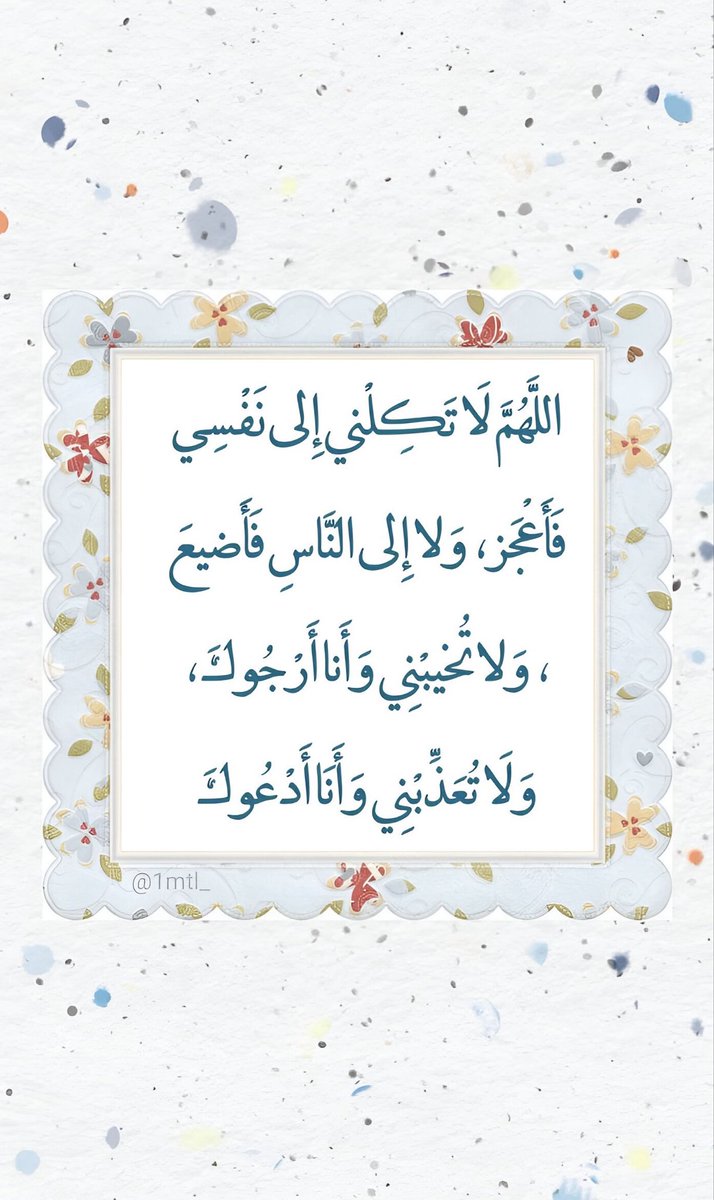 اللَّهُمَّ لَا تَكِلْني إِلى نَفْسِي
فَأَعْجَز، وَلا إِلى النَّاسِ فَأَضيعَ
، وَلا تُخيبْنِي وَأَنا أَرْجُوكَ،
وَلَا تُعَذِّبْنِي وَأَنَا أَدْعُوكَ
@1mtl_